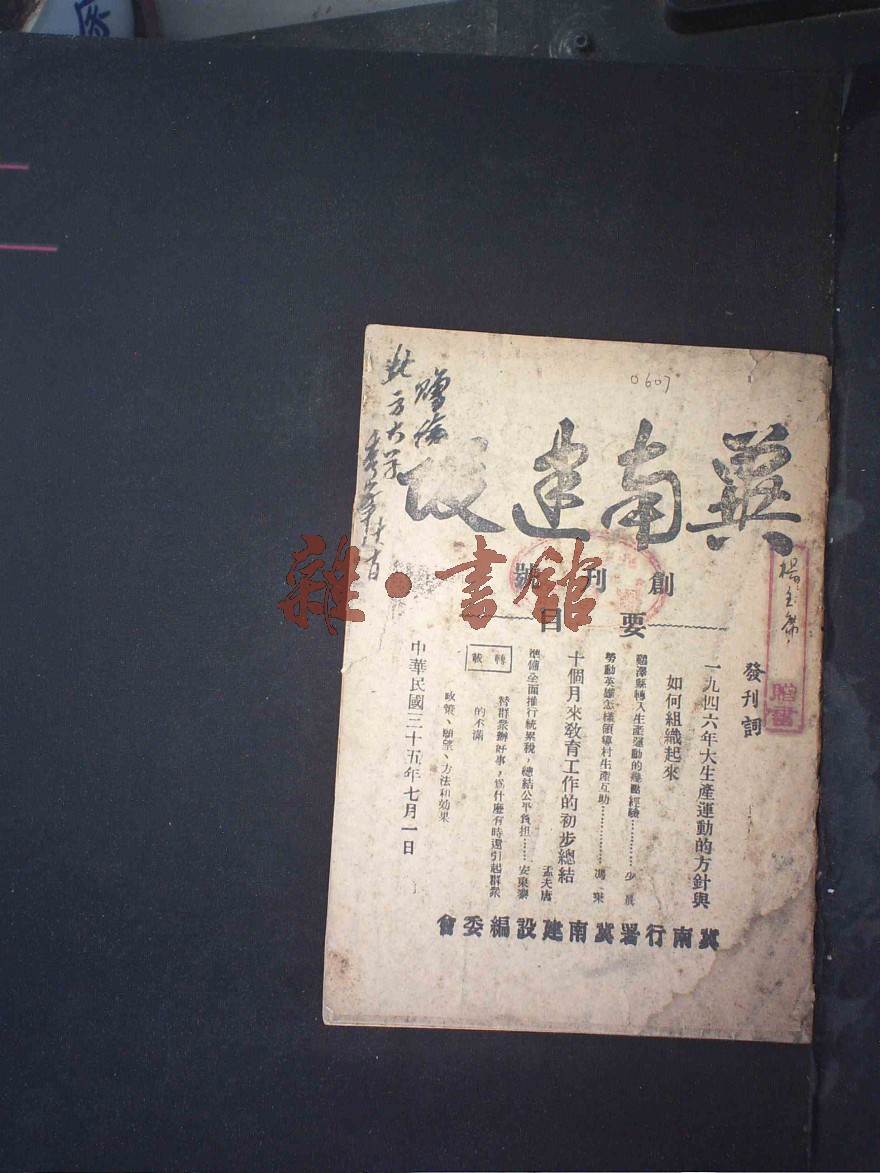 0607
冀南建設
創刊號
要目
發刊詞
一九四六年大生產運動的方針與
如何組織起來
雞澤縣轉入生產運動的幾點經驗…………少農
勞動英雄怎樣領導村生產互助…………馮東
十個月來教育工作的初步總結
孟夫唐
準備全面推行統累稅,總結公平負担……安東泰
轉載
替群眾辦好事,為什麼有時還引起群眾
的不滿
政策、願望、方法和效果
中華民國三十五年七月一日
冀南行署冀南建設編委會
北方大學
雜·書館